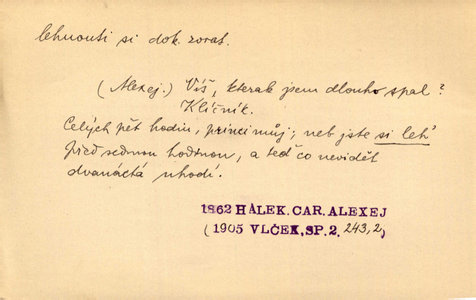 lehnouti si dok. zvrat.
(Alexej.) Víš, kterak jsem dlouho spal?
Klíčník.
Celých pět hodin, princi můj; neb jste si leh'
před sedmou hodinou, a teď co nevidět
dvanáctá uhodí.
1862 HÁLEK. CAR. ALEXEJ
(1905 VLČEK, SP. 2. 243,2)